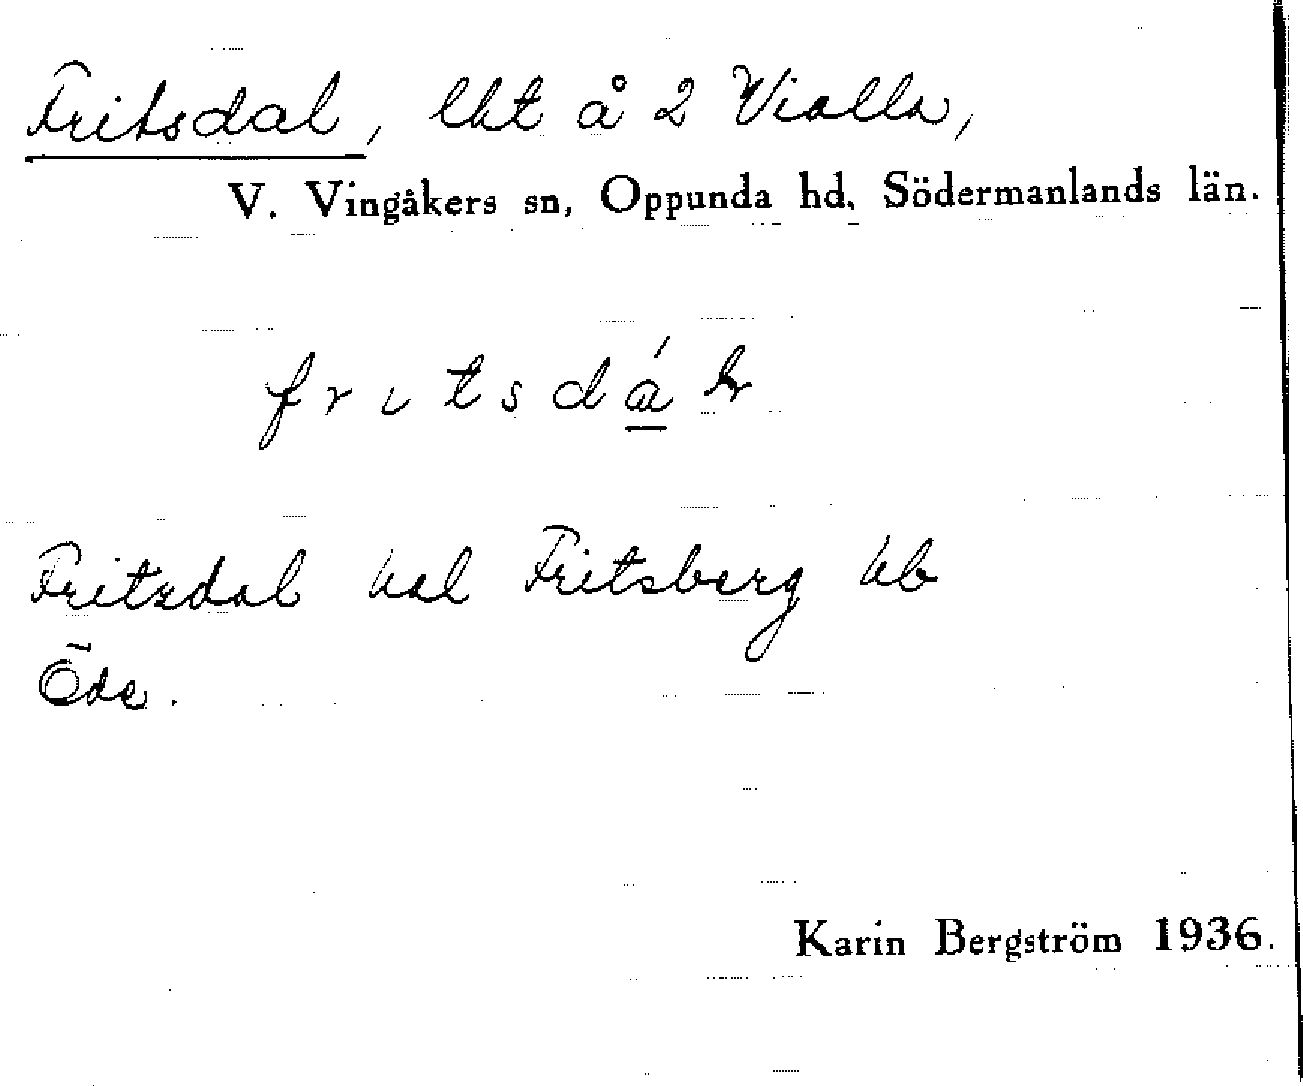 Fritsdal, lht å 2 Vialla,
V. Vingåkers sn, Oppunda hd, Södermanlands län.
fritsdál
Fritzdal hal Fritsberg hb
Öde.
Karin Bergström 1936.